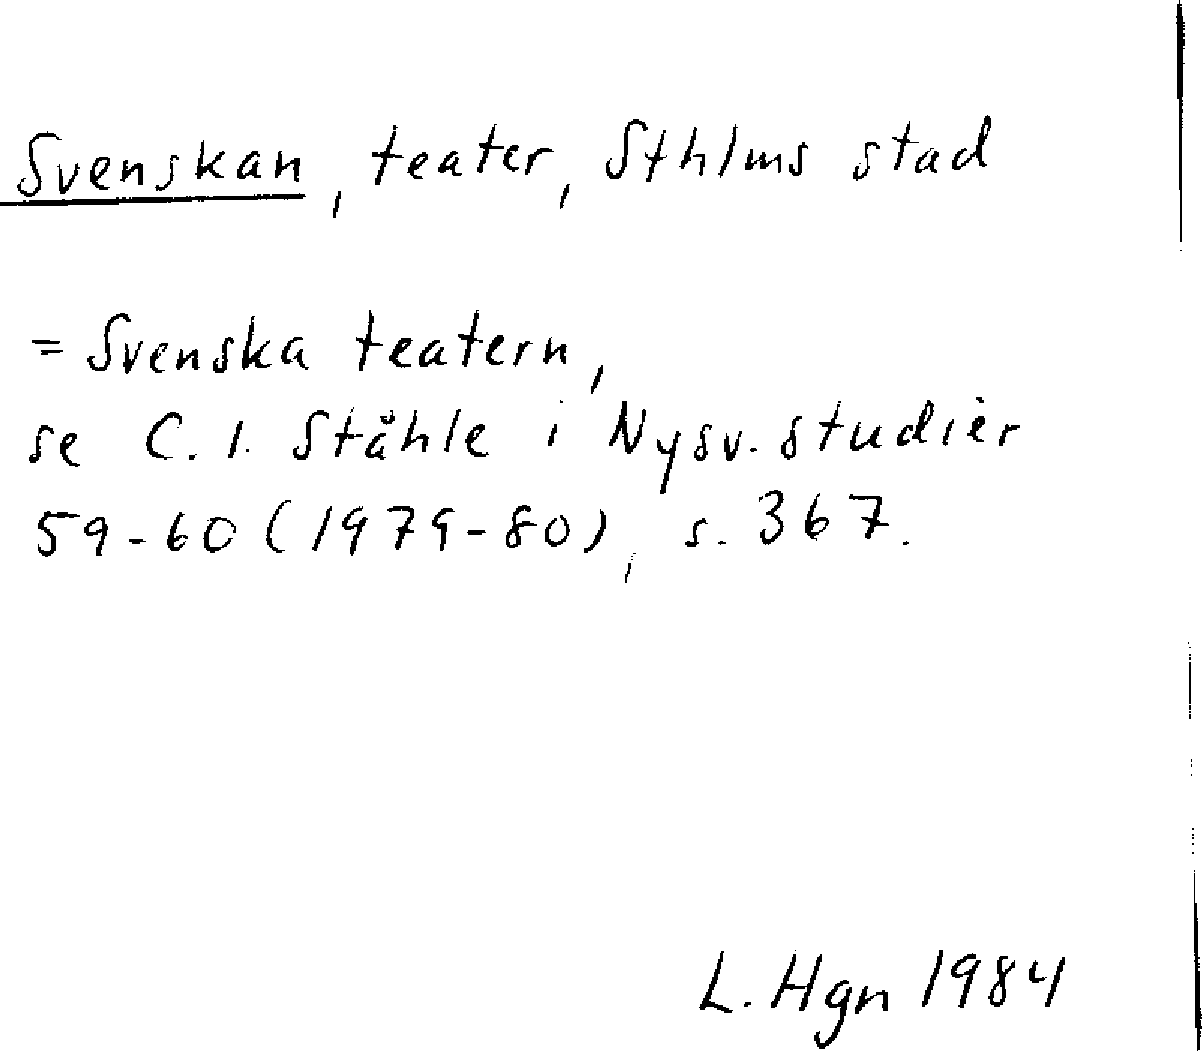 Svenskan, teater, Sthlms stad
= Svenska teatern,
se C. I. Ståhle i Nysv. studier
59-60 (1979-80), s. 367.
L. Hgn 1984